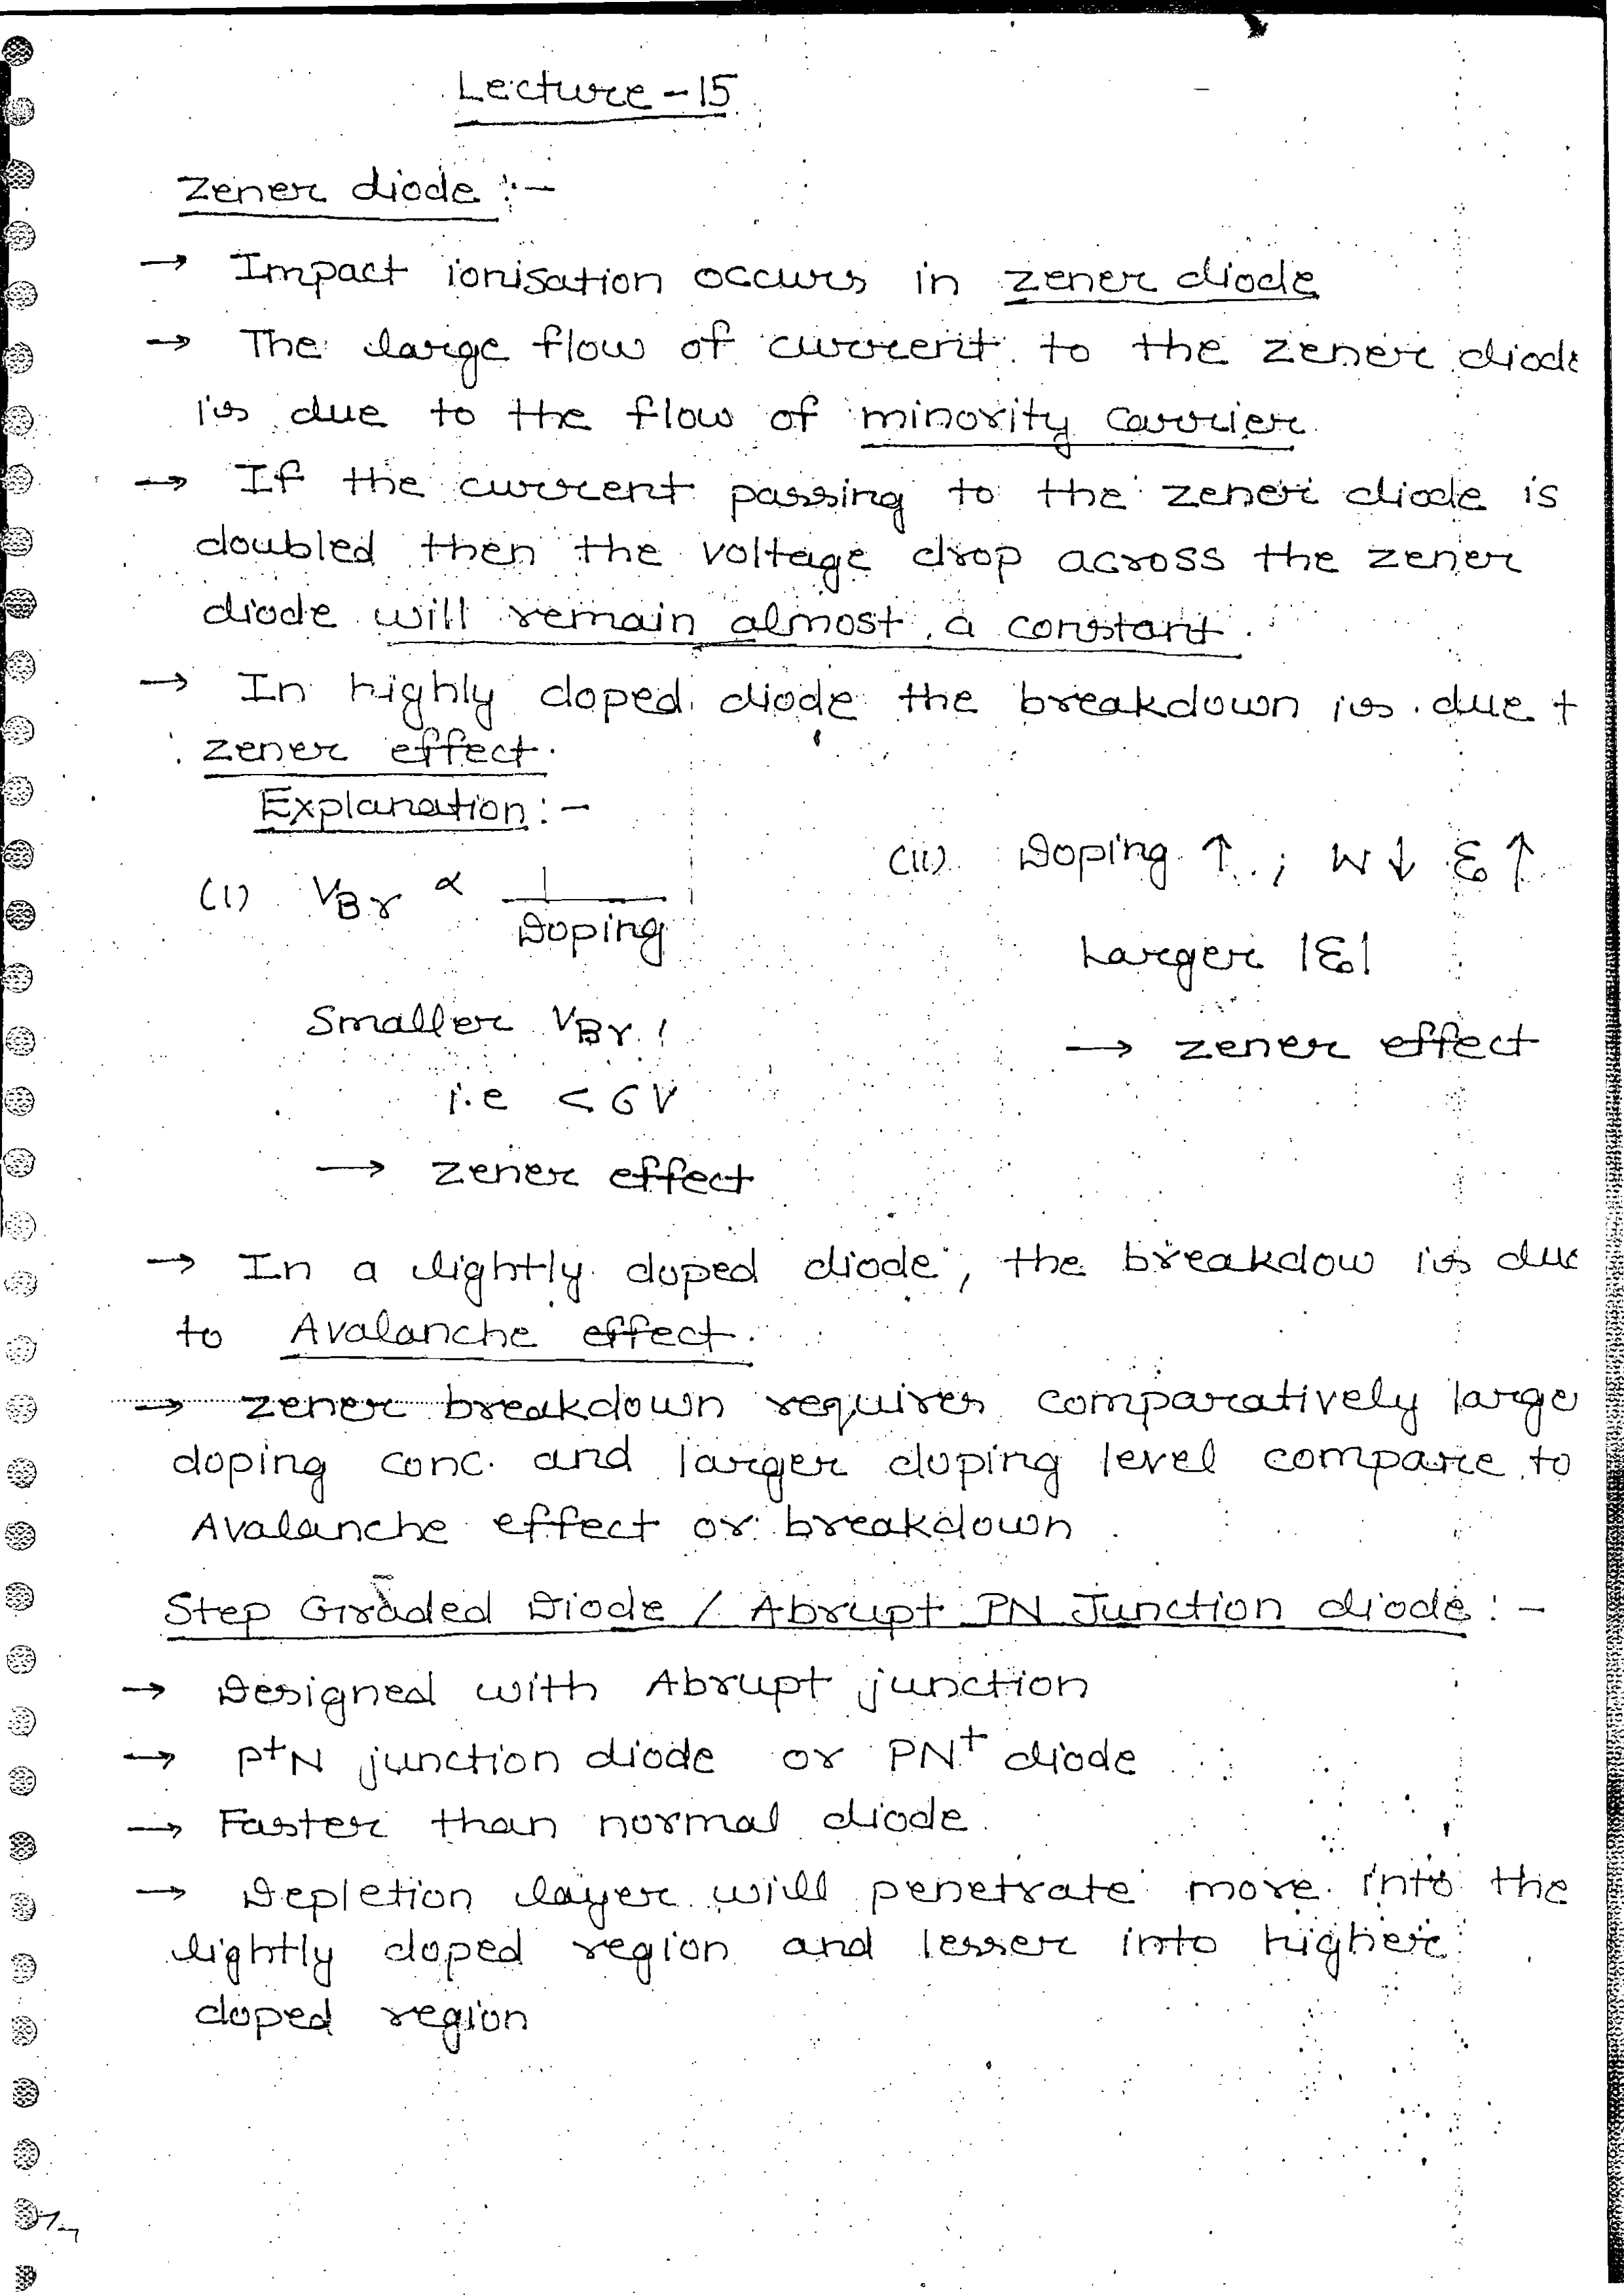 Lecture - 15
Zener diode :-
→ Impact ionisation occurs in zener diode
→ The large flow of current to the zener diode
is due to the flow of minority carrier
→ If the current passing to the zener diode is
doubled then the voltage drop across the zener
diode will remain almost a constant.
→ In highly doped diode the breakdown is due t
zener effect.
Explanation :-
(i) VBr ∝ 1/Doping
Smaller VBr
i.e < 6V
→ zener effect
(ii) Doping ↑ ; W ↓ ε ↑
Larger |ε|
→ zener effect
→ In a lightly doped diode, the breakdow is due
to Avalanche effect.
→ zener breakdown requires comparatively large
doping conc. and larger doping level compare to
Avalanche effect or breakdown
Step Graded Diode / Abrupt PN Junction diode :-
→ Designed with Abrupt junction
→ P+N junction diode or PN+ diode
→ Faster than normal diode.
→ Depletion layer will penetrate more into the
lightly doped region and lesser into higher
doped region